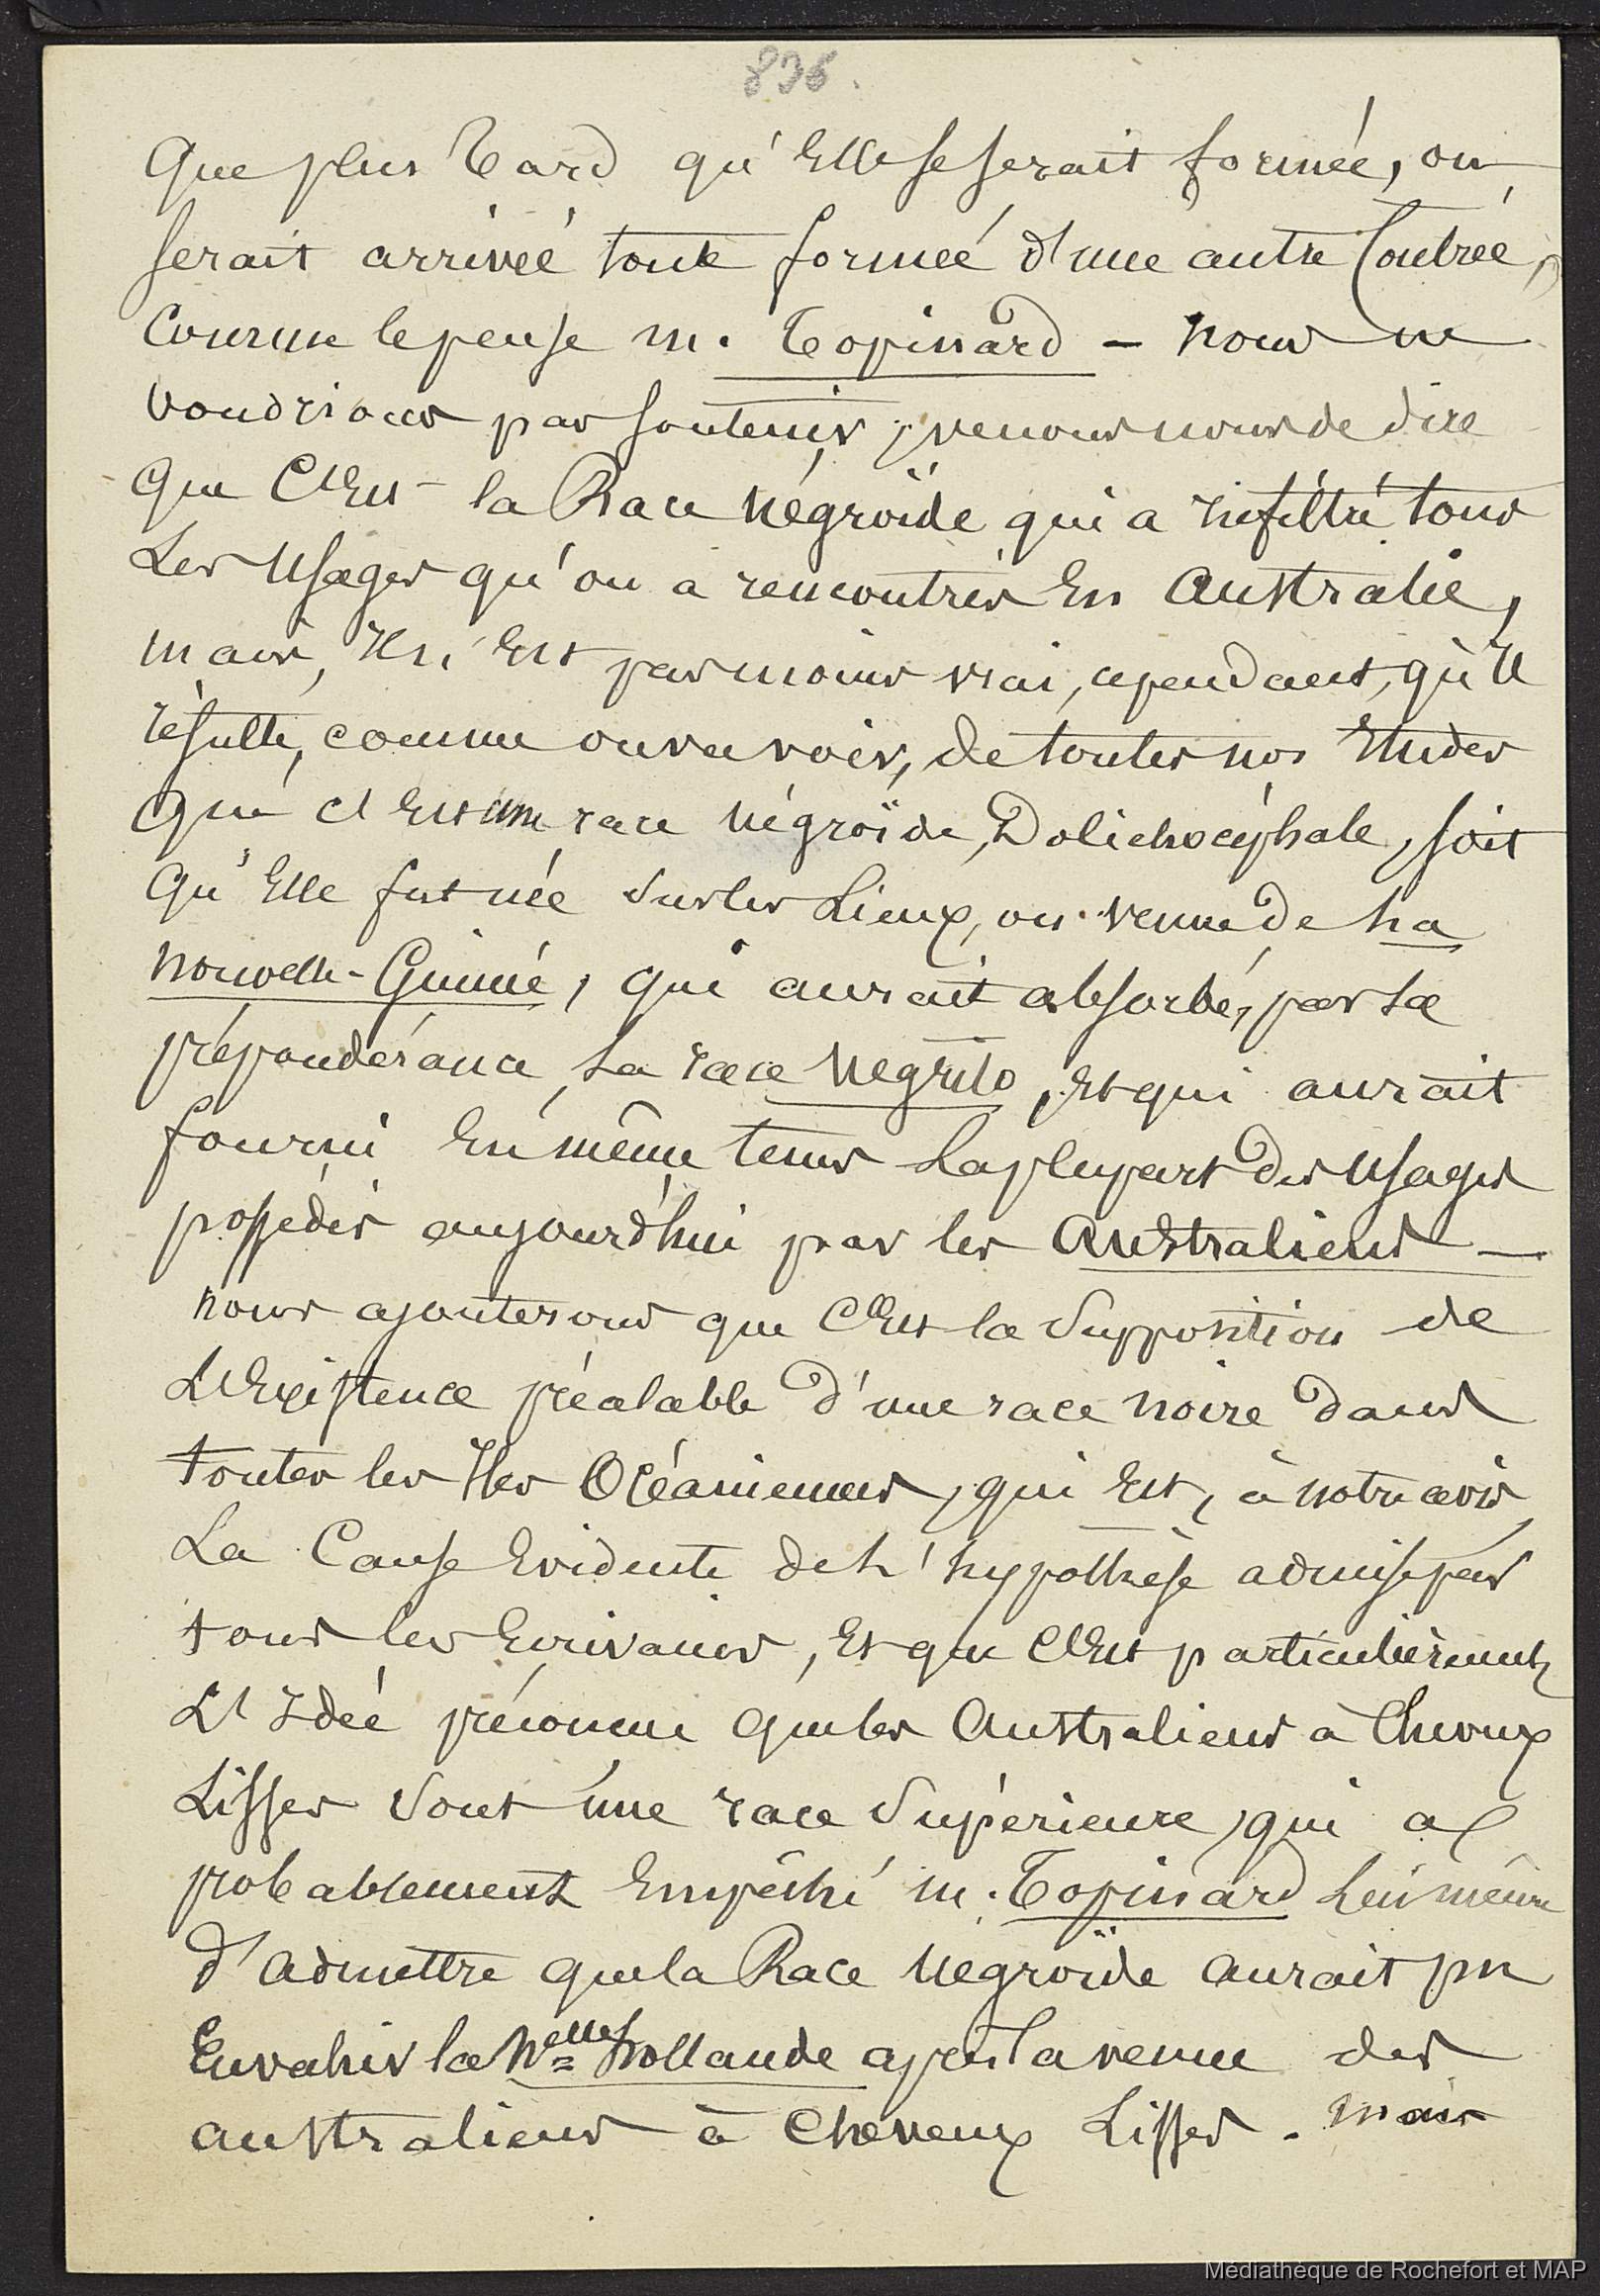 836.
Que plus Tard qu'Elle se serait formée, ou
serait arrivée toute formée d'une autre Contrée,
Comme le pense M. Topinard - Nous ne
Voudrions pas soutenir, venons nous de dire
Que C'Est la Race Négroïde qui a infiltré tous
Les Usages qu'on a rencontrés En Australie,
Mais, Il n'Est pas moins vrai, cependant, qu'Il
résulte, comme on va voir, de toutes nos Etudes
Que c'Est une race Négroïde, Dolichocéphale, soit
Qu'Elle fut née Sur les Lieux, ou venue de La
Nouvelle-Guinée, qui aurait absorbé, par sa
prépondérance, La race Negrito, Et qui aurait
fourni En même tems La plupart des Usages
possédés aujourd'hui par les Australiens —
Nous ajouterons que C'Est la Supposition de
L'Existence préalable d'une race noire dans
toutes les Iles Océaniennes, qui Est, à notre avis,
La Cause Evidente de L'hypothèse admise par
tous les Ecrivains, Et que C'Est particulièrement
L'Idée préconçue que les Australiens à Cheveux
Lisses Sont une race Supérieure, qui a
probablement Empêché M. Topinard Lui même
d'admettre que la Race Negroïde aurait pu
Envahir la Nelle Hollande après la venue des
Australiens à Cheveux Lisses. Mais
Médiathèque de Rochefort et MAP